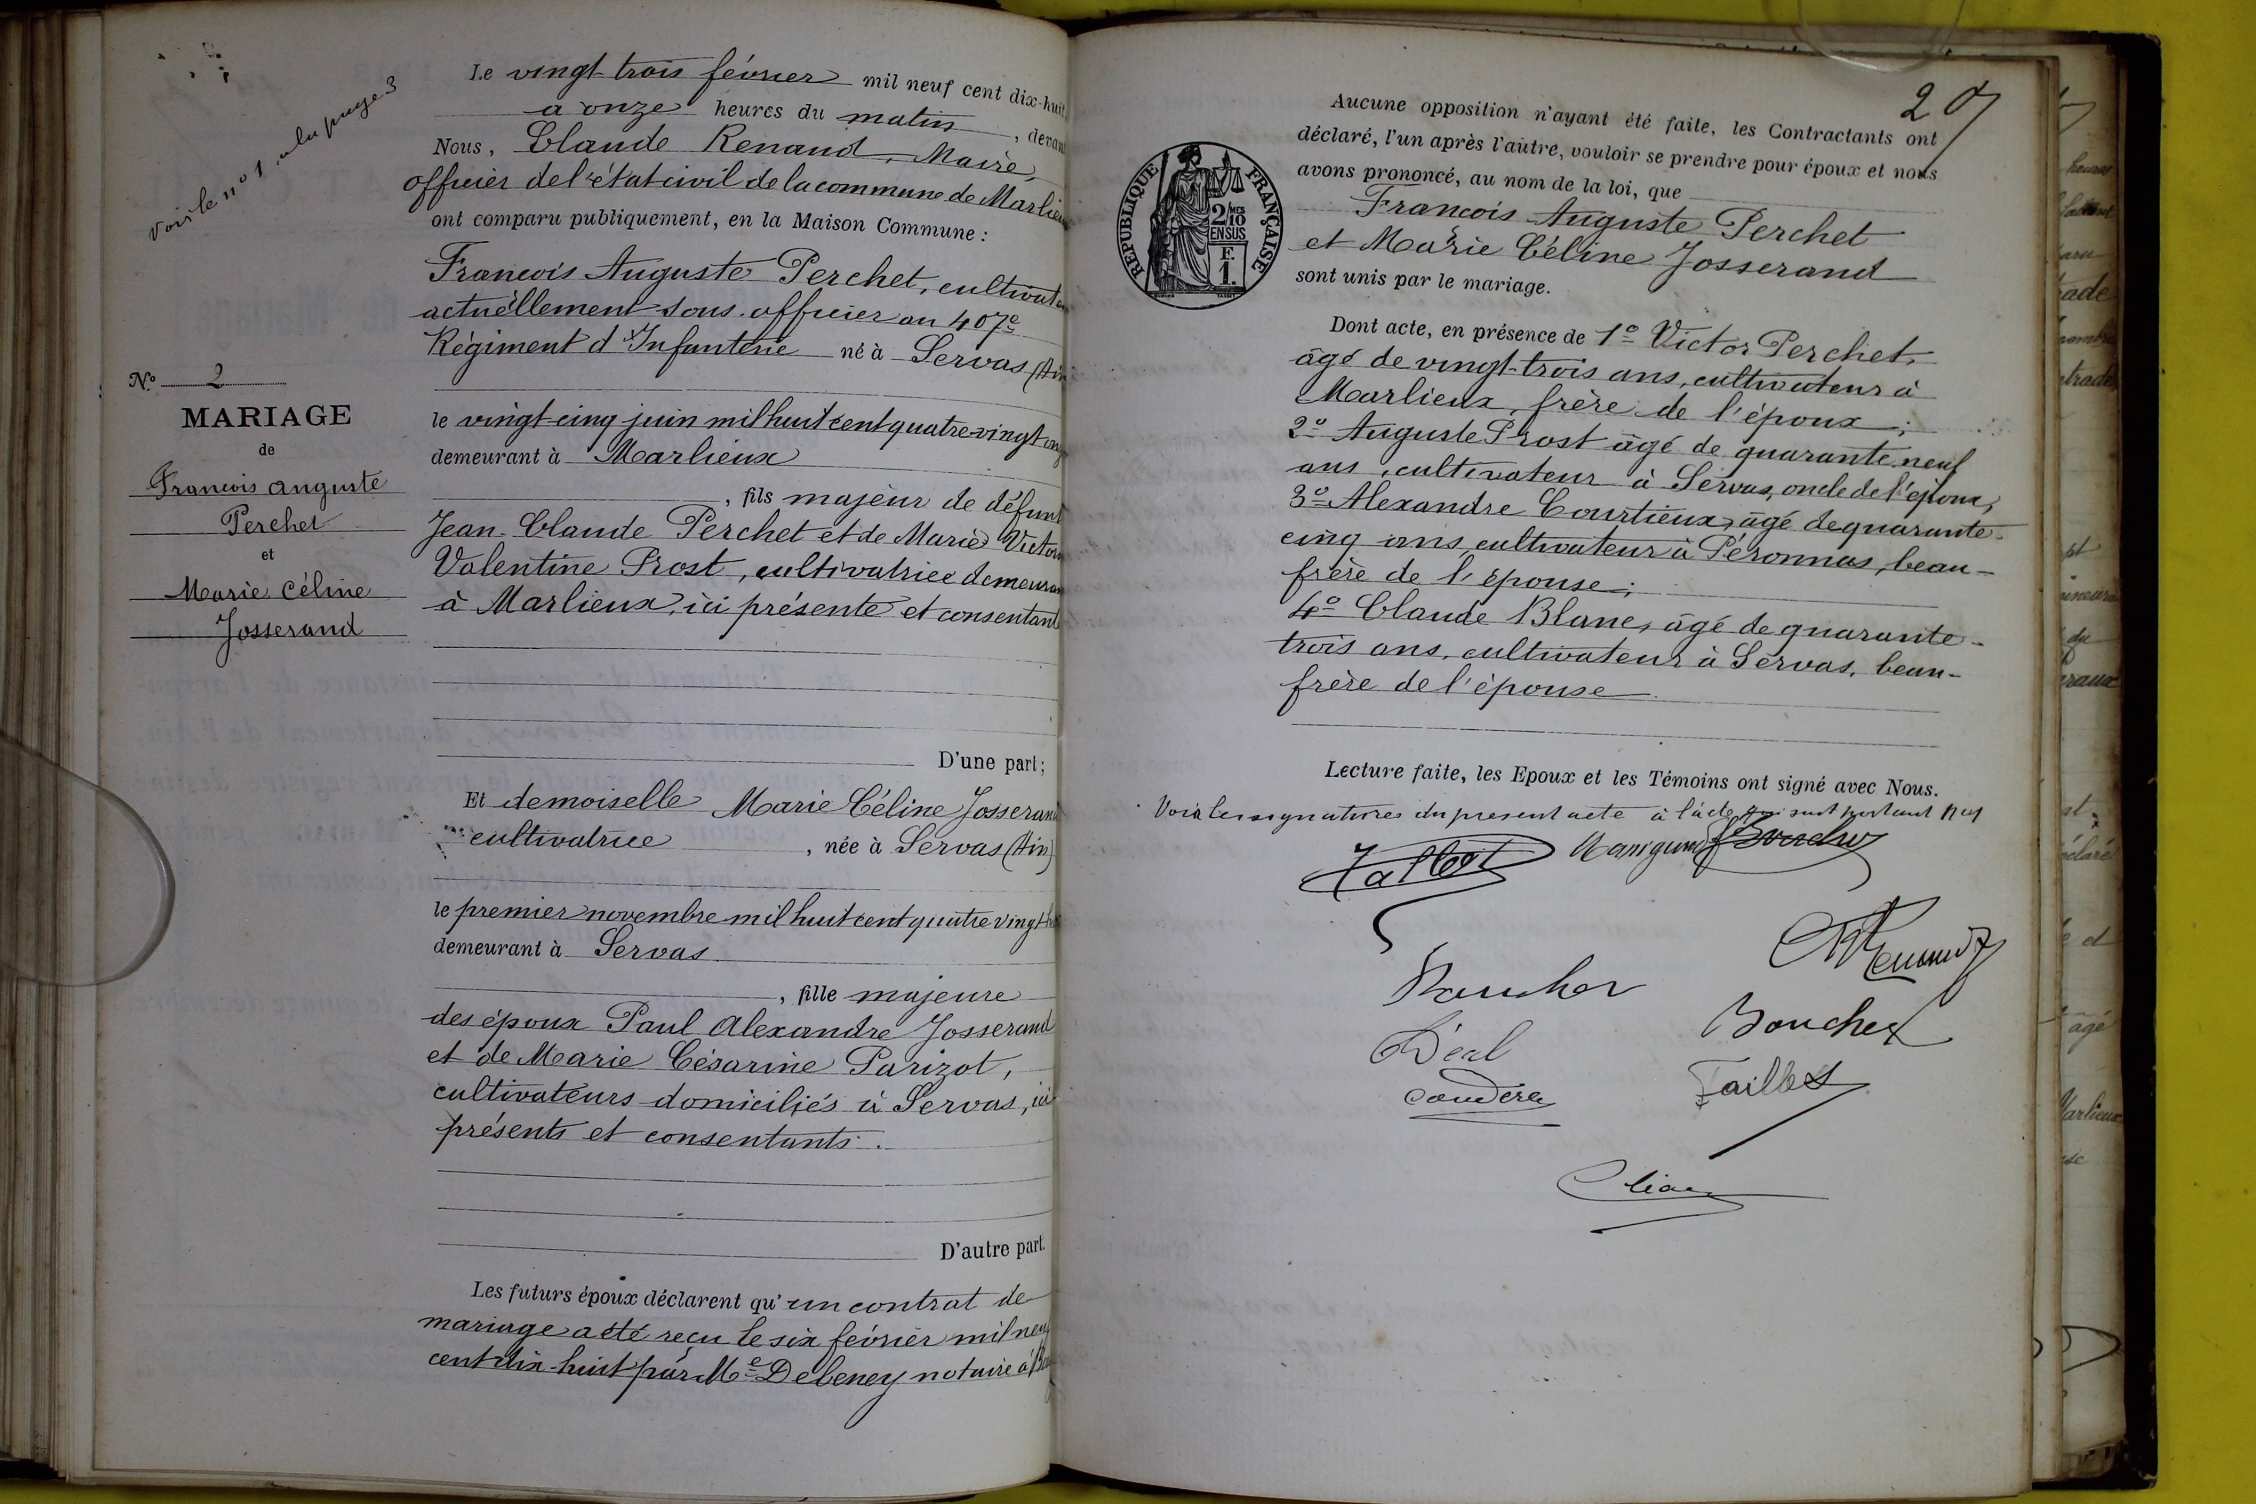 Voir le n° 1, à la page 3
Le vingt-trois février mil neuf cent dix-huit,
à onze heures du matin, devant
Nous, Claude Renaud, Maire,
officier de l'état civil de la commune de Marlieux
ont comparu publiquement, en la Maison Commune :
François Auguste Perchet, cultivateur
actuéllement sous-officier au 407e
Régiment d'Infanterie né à Servas (Ain
le vingt-cinq juin mil huit cent quatre-vingt onze
demeurant à Marlieux
, fils majeur de défunt
Jean-Claude Perchet et de Marie Victorine
Valentine Prost, cultivatrice demeurant
à Marlieux, ici présente et consentant
D'une part ;
N.º 2
MARIAGE
de
François Auguste
Perchet
et
Marie Céline
Josserand
Et demoiselle Marie Céline Josserand
cultivatrice, née à Servas (Ain)
le premier novembre mil huit cent quatre vingt
demeurant à Servas
, fille majeure
des époux Paul Alexandre Josserand
et de Marie Césarine Parizot,
cultivateurs domiciliés à Servas, ici
présents et consentants.
D'autre part.
Les futurs époux déclarent qu'un contrat de
mariage a été reçu le six février mil neuf
cent dix-huit par Me Debeney notaire à
2
Aucune opposition n'ayant été faite, les Contractants ont
déclaré, l'un après l'autre, vouloir se prendre pour époux et nous
avons prononcé, au nom de la loi, que
François Auguste Perchet
et Marie Céline Josserand
sont unis par le mariage.
RÉPUBLIQUE FRANÇAISE
2/10 MES
EN SUS
F.
1.
Dont acte, en présence de 1º Victor Perchet,
âgé de vingt-trois ans, cultivateur à
Marlieux, frère de l'époux ;
2º Auguste Prost âgé de quarante-neuf
ans, cultivateur à Servas, oncle de l'époux,
3º Alexandre Courtieux, âgé de quarante-
cinq ans, cultivateur à Péronnas, beau-
frère de l'épouse ;
4º Claude Blanc, âgé de quarante-
trois ans, cultivateur à Servas, beau-
frère de l'épouse
Lecture faite, les Epoux et les Témoins ont signé avec Nous.
Voir les signatures du present acte à l'acte qui suit portant
Bouchet